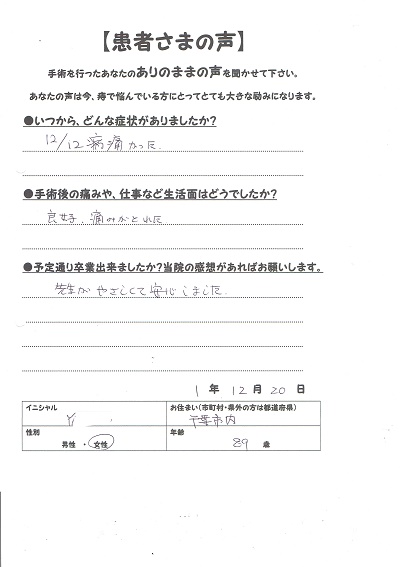 【患者さまの声】
手術を行ったあなたのありのままの声を聞かせて下さい。
あなたの声は今、痔で悩んでいる方にとってとても大きな励みになります。
●いつから、どんな症状がありましたか?
12/12 痛かった
●手術後の痛みや、仕事など生活面はどうでしたか?
良好、痛みがとれた
●予定通り卒業出来ましたか?当院の感想があればお願いします。
先生がやさしくて安心しました。
1年12月20日
イニシャル
お住まい(市町村・県外の方は都道府県)
千葉市内
性別
男性・女性
年齢
89 歳